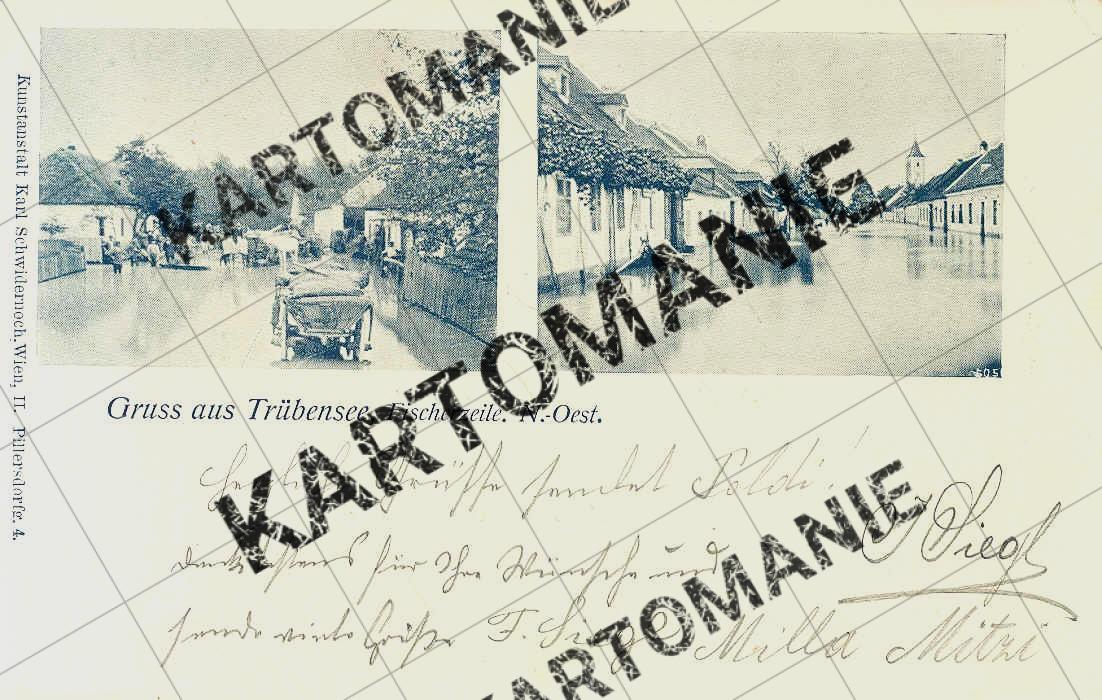 Kunstanstalt Karl Schwidernoch, Wien, II. Pillersdorfg. 4.
605
Gruss aus Trübensee. Fischerzeile. N.-Oest.
Herzliche Grüsse sendet Poldi!
J Siegl
Dankestens für Ihre Wünsche und
sende viele Grüße F. Siegl Milla Mitzi
KARTOMANIE
KARTOMANIE
KARTOMANIE